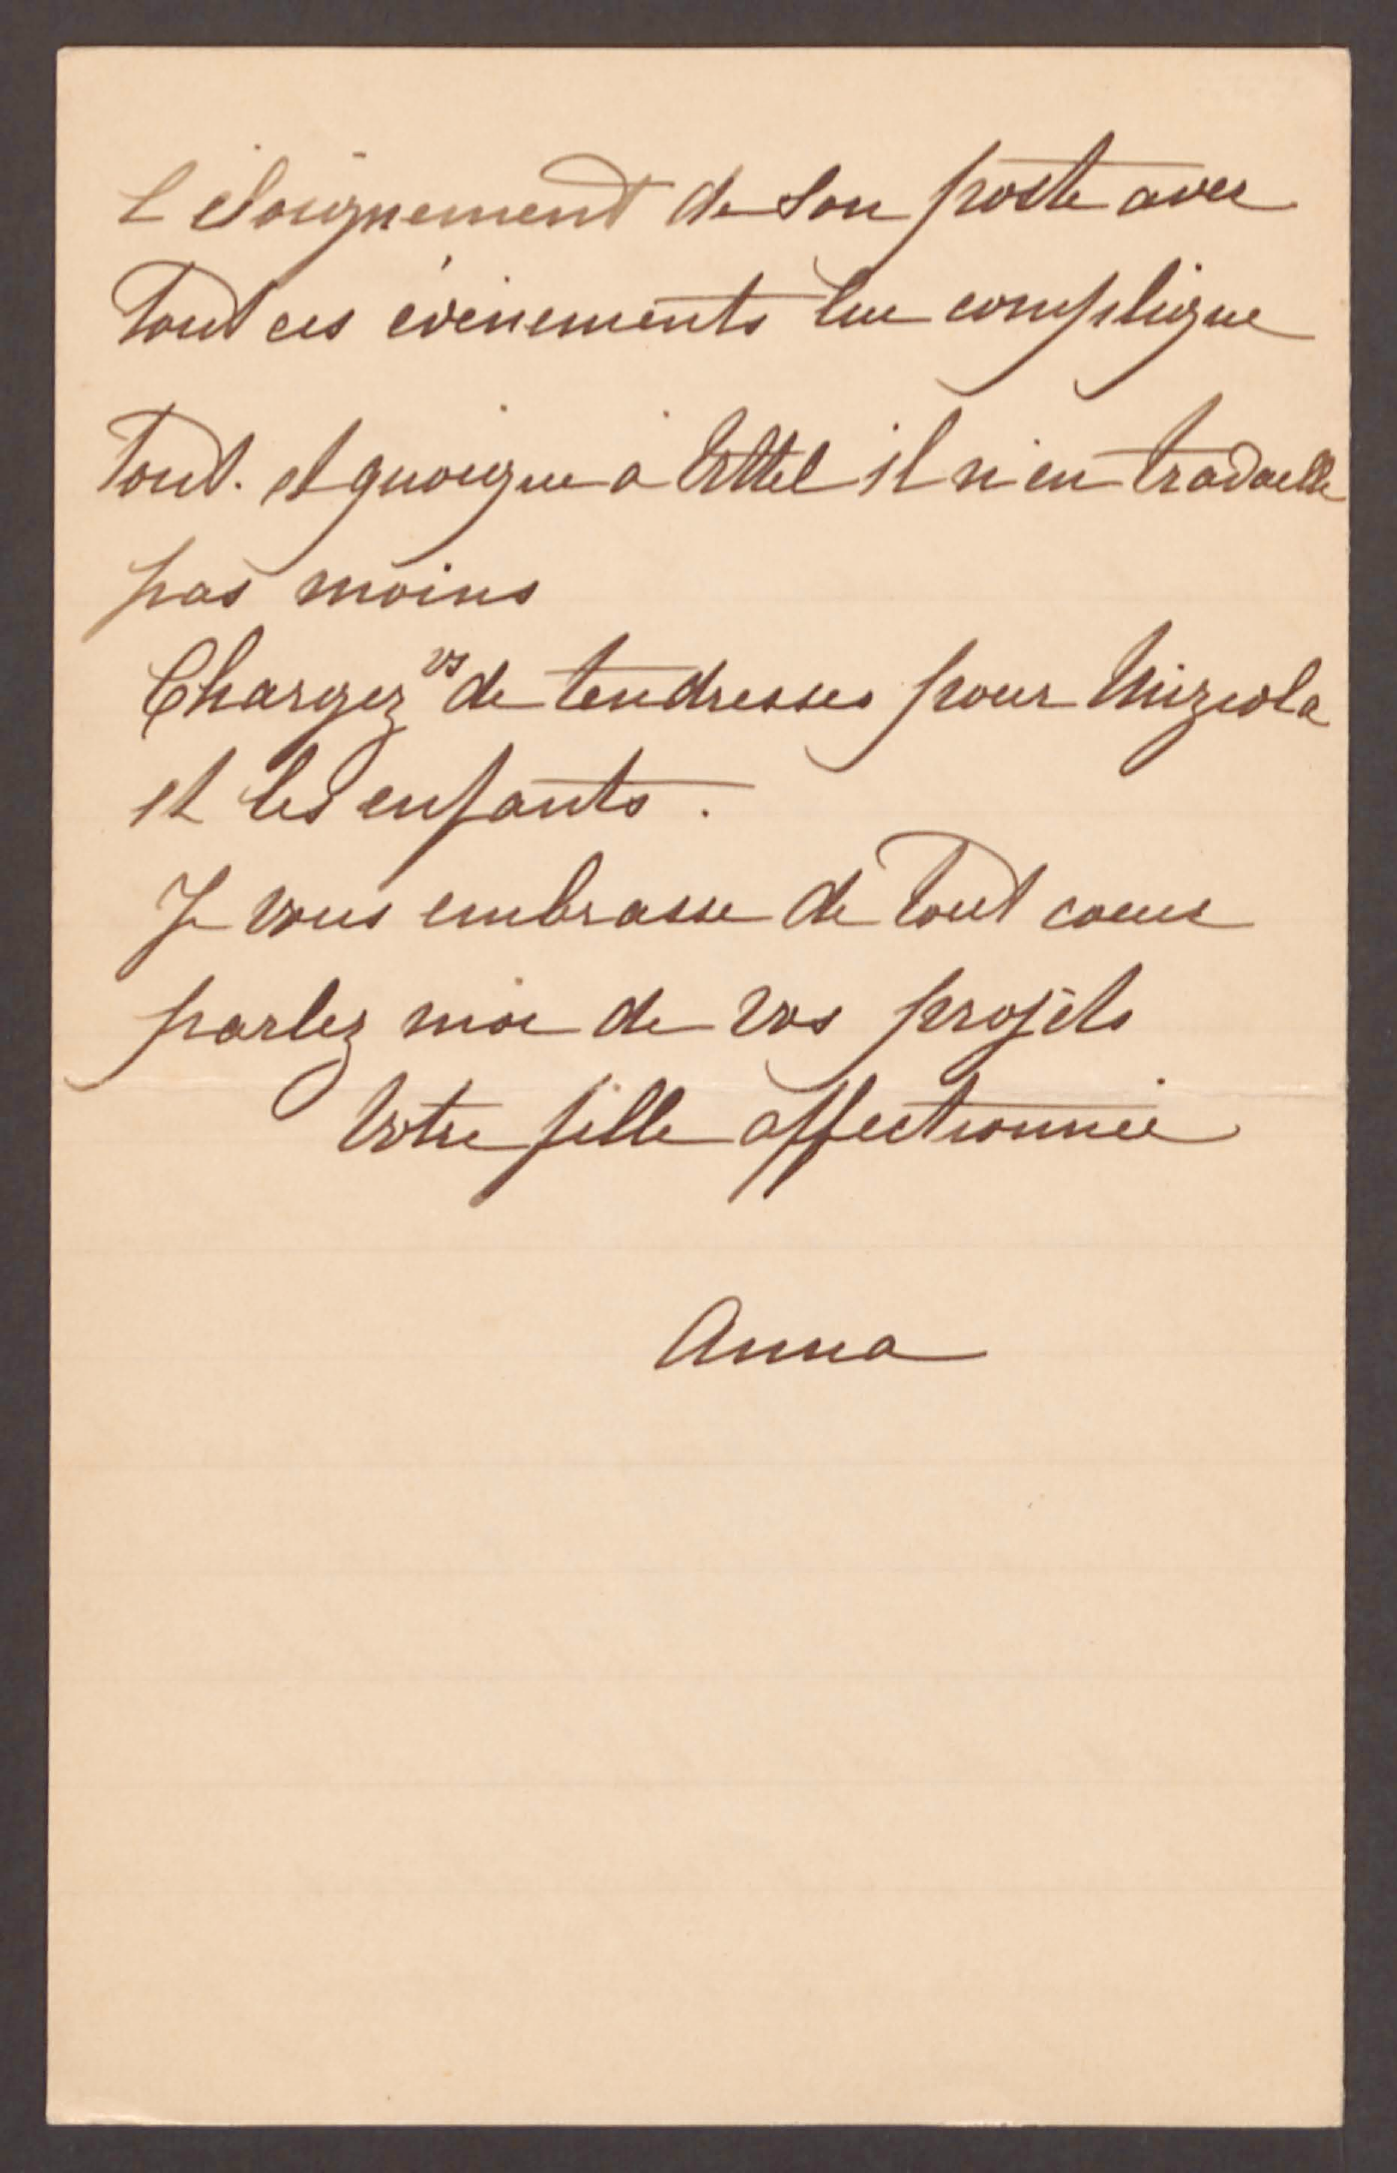 L'éloignement de son poste avec
tout ces évènements lui complique
tout. et quoique à Ettel il n'en travaille
pas moins
Chargez vs de tendresses pour Miziola
et les enfants.
Je vous embrasse de tout coeur
parlez moi de vos projets
Votre fille affectionnée
Anna